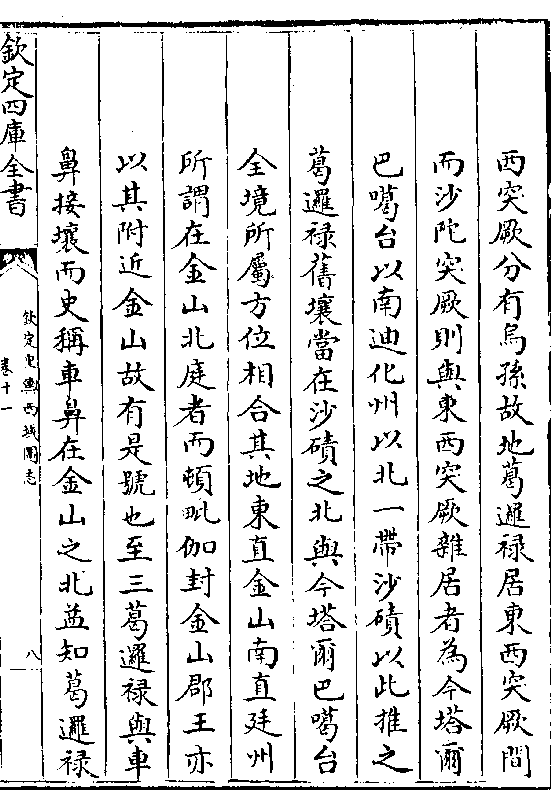 西突厥分有烏孫故地葛邏禄居東西突厥間
而沙陀突厥則與東西突厥雜居者為今塔爾
巴噶台以南迪化州以北一帶沙磧以此推之
葛邏禄舊壤當在沙磧之北與今塔爾巴噶台
全境所屬方位相合其地東直金山南直廷州
所謂在金山北庭者而頓毗伽封金山郡王亦
以其附近金山故有是號也至三葛邏禄與車
鼻接壤而史稱車鼻在金山之北益知葛邏禄
欽定四庫全書
欽定皇輿西域圖志
卷十一
八